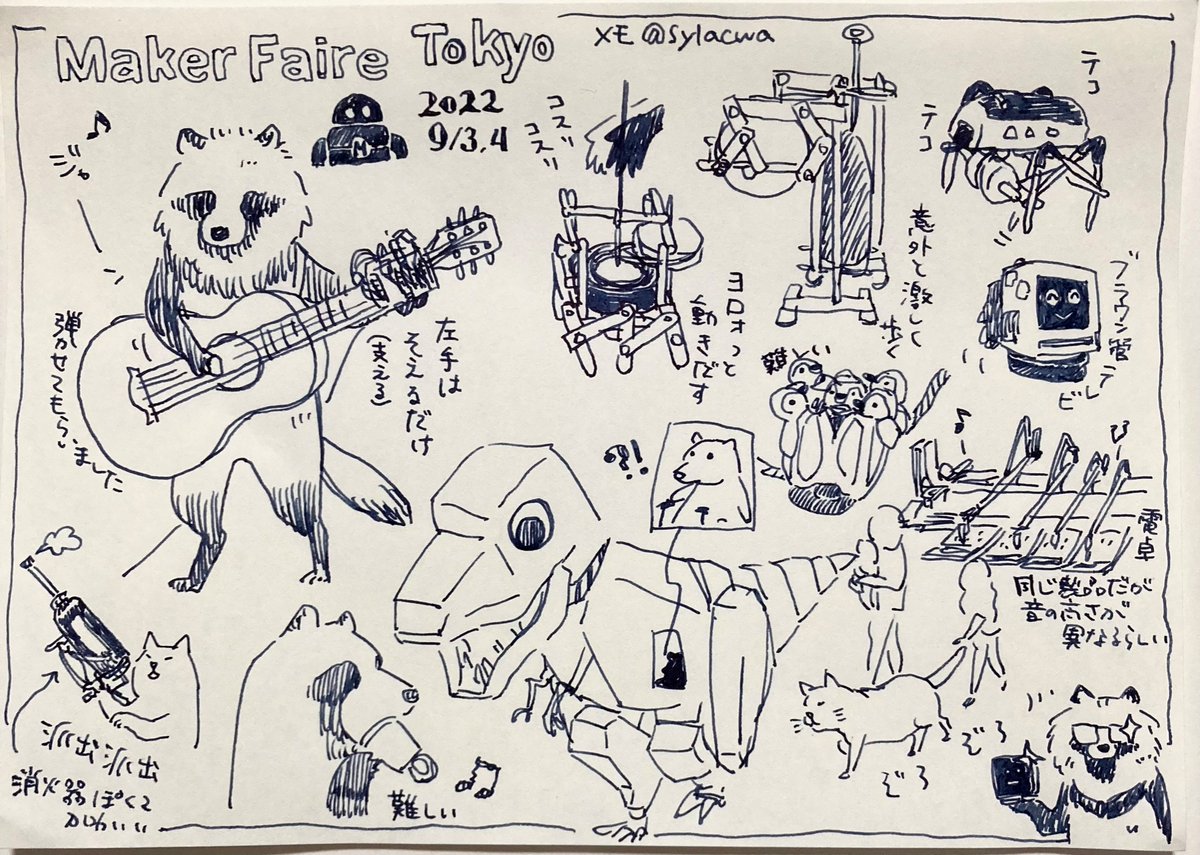 Maker Faire Tokyo
メモ @sylacwa
2022
9/3,4
M
コスッ
コスッ
テコ
テコ
意外と激しく
歩く
ヨロォっと
動きだす
ブラウン管テレビ
左手は
そえるだけ
(支える)
弾かせてもらいました
?!
電卓
同じ製品だが
音の高さが
異なるらしい
派出派出
消火器ぽくて
かわいい
難しい
ぞろ
ぞろ